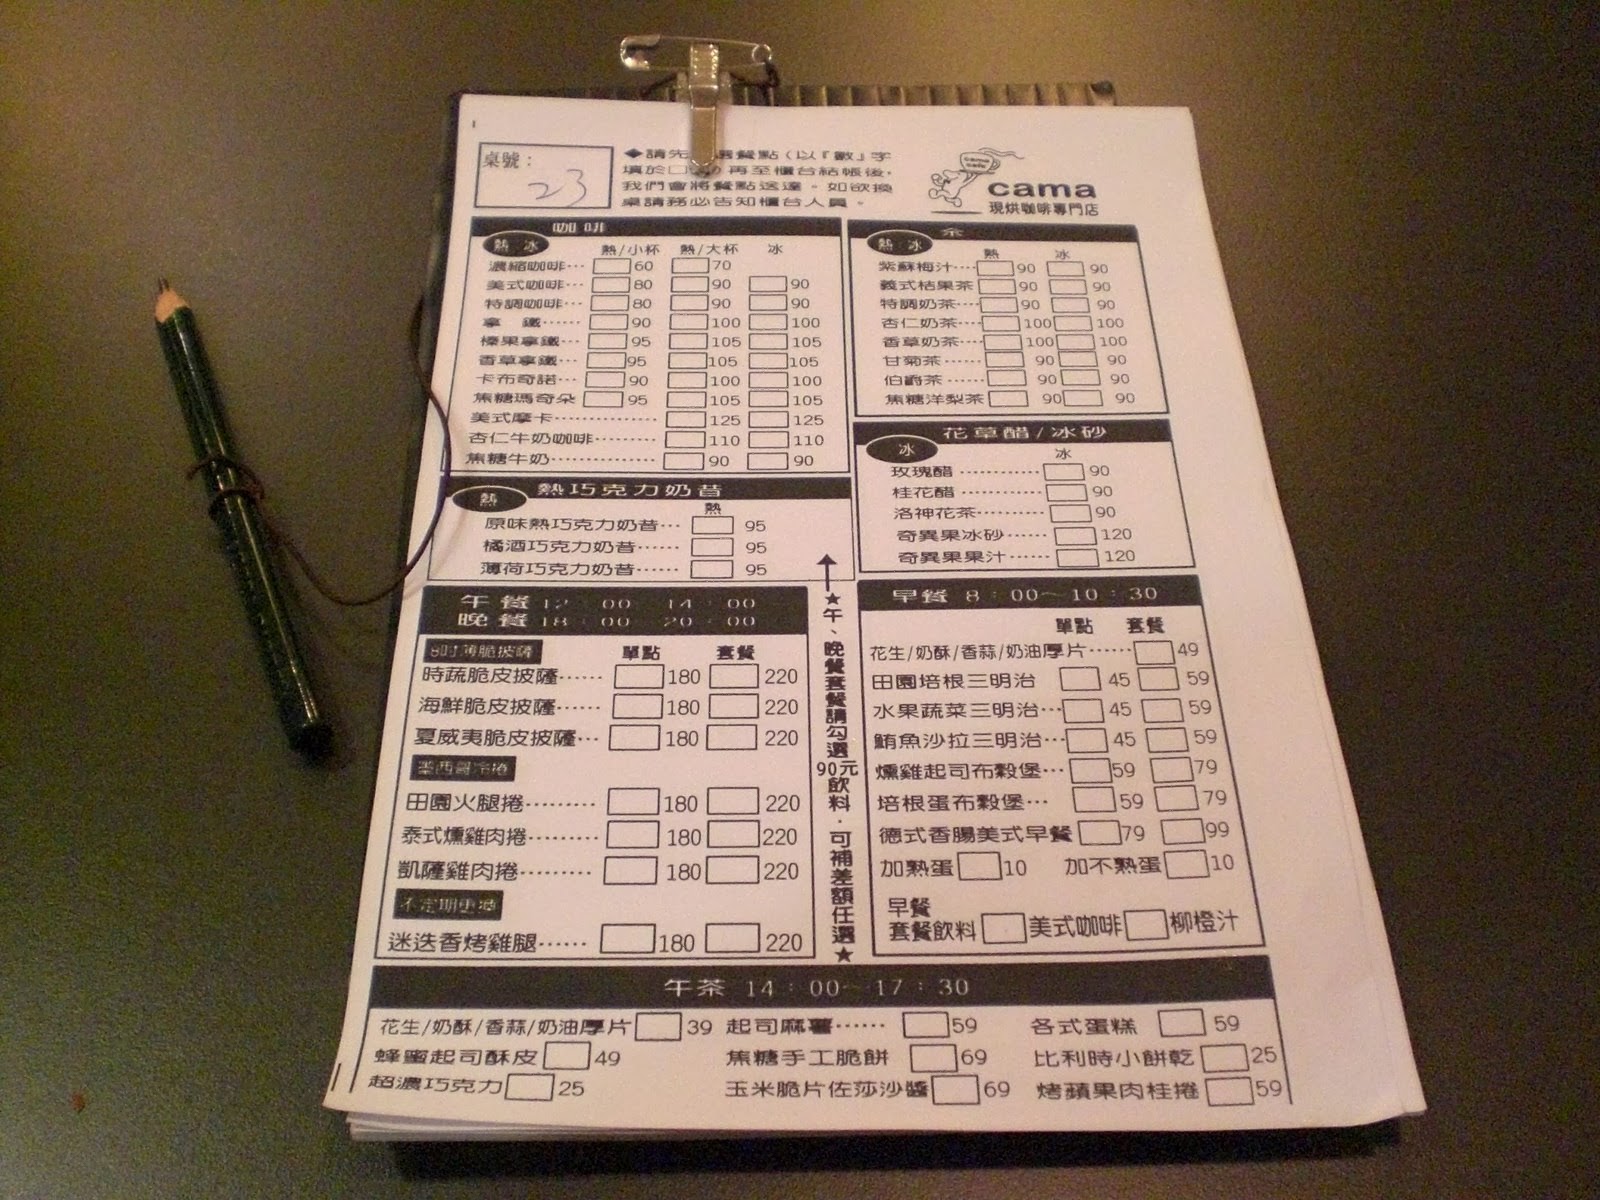 桌號：
23
◆請先 選餐點（以『數』字
填於□內）再至櫃台結帳後，
我們會將餐點送達。如欲換
桌請務必告知櫃台人員。
cama cafe
cama
現烘咖啡專門店
咖啡
熱 冰
熱/小杯 熱/大杯 冰
濃縮咖啡… 60 70
美式咖啡… 80 90 90
特調咖啡… 80 90 90
拿 鐵…… 90 100 100
榛果拿鐵… 95 105 105
香草拿鐵… 95 105 105
卡布奇諾… 90 100 100
焦糖瑪奇朵 95 105 105
美式摩卡………… 125 125
杏仁牛奶咖啡…… 110 110
焦糖牛奶………… 90 90
熱
熱巧克力奶昔
熱
原味熱巧克力奶昔… 95
橘酒巧克力奶昔…… 95
薄荷巧克力奶昔…… 95
茶
熱 冰
熱 冰
紫蘇梅汁… 90 90
義式桔果茶 90 90
特調奶茶… 90 90
杏仁奶茶… 100 100
香草奶茶… 100 100
甘菊茶…… 90 90
伯爵茶…… 90 90
焦糖洋梨茶 90 90
花草醋/冰砂
冰
冰
玫瑰醋………… 90
桂花醋………… 90
洛神花茶……… 90
奇異果冰砂…… 120
奇異果果汁…… 120
午餐 12：00 14：00
晚餐 18：00 20：00
8吋薄脆披薩 單點 套餐
時蔬脆皮披薩…… 180 220
海鮮脆皮披薩…… 180 220
夏威夷脆皮披薩… 180 220
墨西哥冷捲
田園火腿捲……… 180 220
泰式燻雞肉捲…… 180 220
凱薩雞肉捲……… 180 220
不定期更換
迷迭香烤雞腿…… 180 220
★午、晚餐套餐請勾選90元飲料．可補差額任選★
早餐 8：00～10：30
單點 套餐
花生/奶酥/香蒜/奶油厚片…… 49
田園培根三明治 45 59
水果蔬菜三明治… 45 59
鮪魚沙拉三明治… 45 59
燻雞起司布穀堡… 59 79
培根蛋布穀堡… 59 79
德式香腸美式早餐 79 99
加熟蛋 10 加不熟蛋 10
早餐
套餐飲料 美式咖啡 柳橙汁
午茶 14：00～17：30
花生/奶酥/香蒜/奶油厚片 39 起司麻薯…… 59 各式蛋糕 59
蜂蜜起司酥皮 49 焦糖手工脆餅 69 比利時小餅乾 25
超濃巧克力 25 玉米脆片佐莎沙醬 69 烤蘋果肉桂捲 59